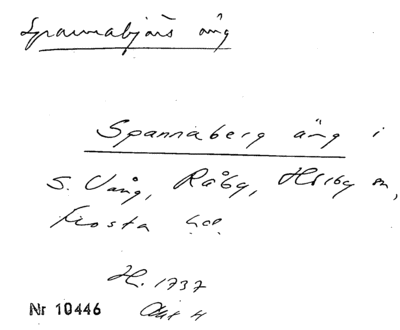 Spannabjärs äng
Spannaberg äng i
S. Vång, Råby, Hörby sn,
Frosta hd.
H. 1737
Akt 4
Nr 10446